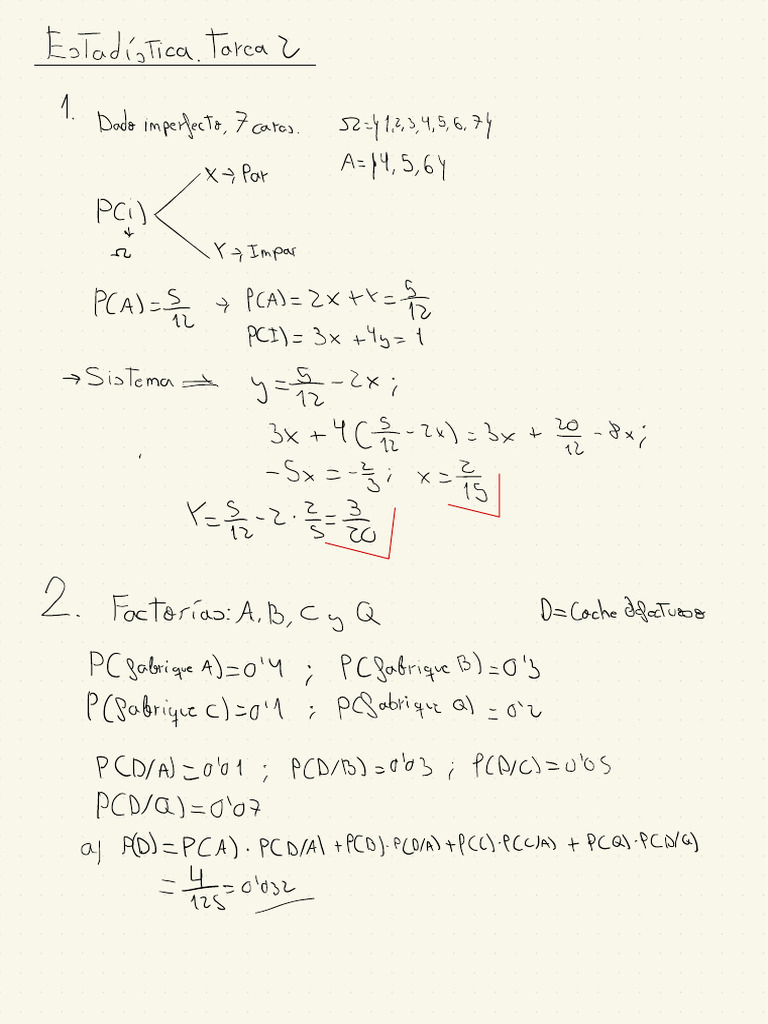 Estadística. Tarea 2
1. Dado imperfecto, 7 caras. Ω={1,2,3,4,5,6,7}
A={4,5,6}
X→Par
P(i)
↓
Ω
Y→Impar
P(A)=5/12 → P(A)=2x+Y=5/12
P(I)=3x+4y=1
→Sistema ⇒ y=5/12-2x;
3x+4(5/12-2x)=3x+20/12-8x;
-5x=-2/3; x=2/15
Y=5/12-2·2/5=3/20
2. Factorías: A, B, C y Q D=Coche defectuoso
P(fabrique A)=0'4 ; P(fabrique B)=0'3
P(fabrique C)=0'1 ; P(fabrique Q)=0'2
P(D/A)=0'01 ; P(D/B)=0'03 ; P(D/C)=0'05
P(D/Q)=0'07
a) P(D)=P(A)·P(D/A)+P(D)·P(D/A)+P(C)·P(C/A)+P(Q)·P(D/Q)
=4/125=0'032